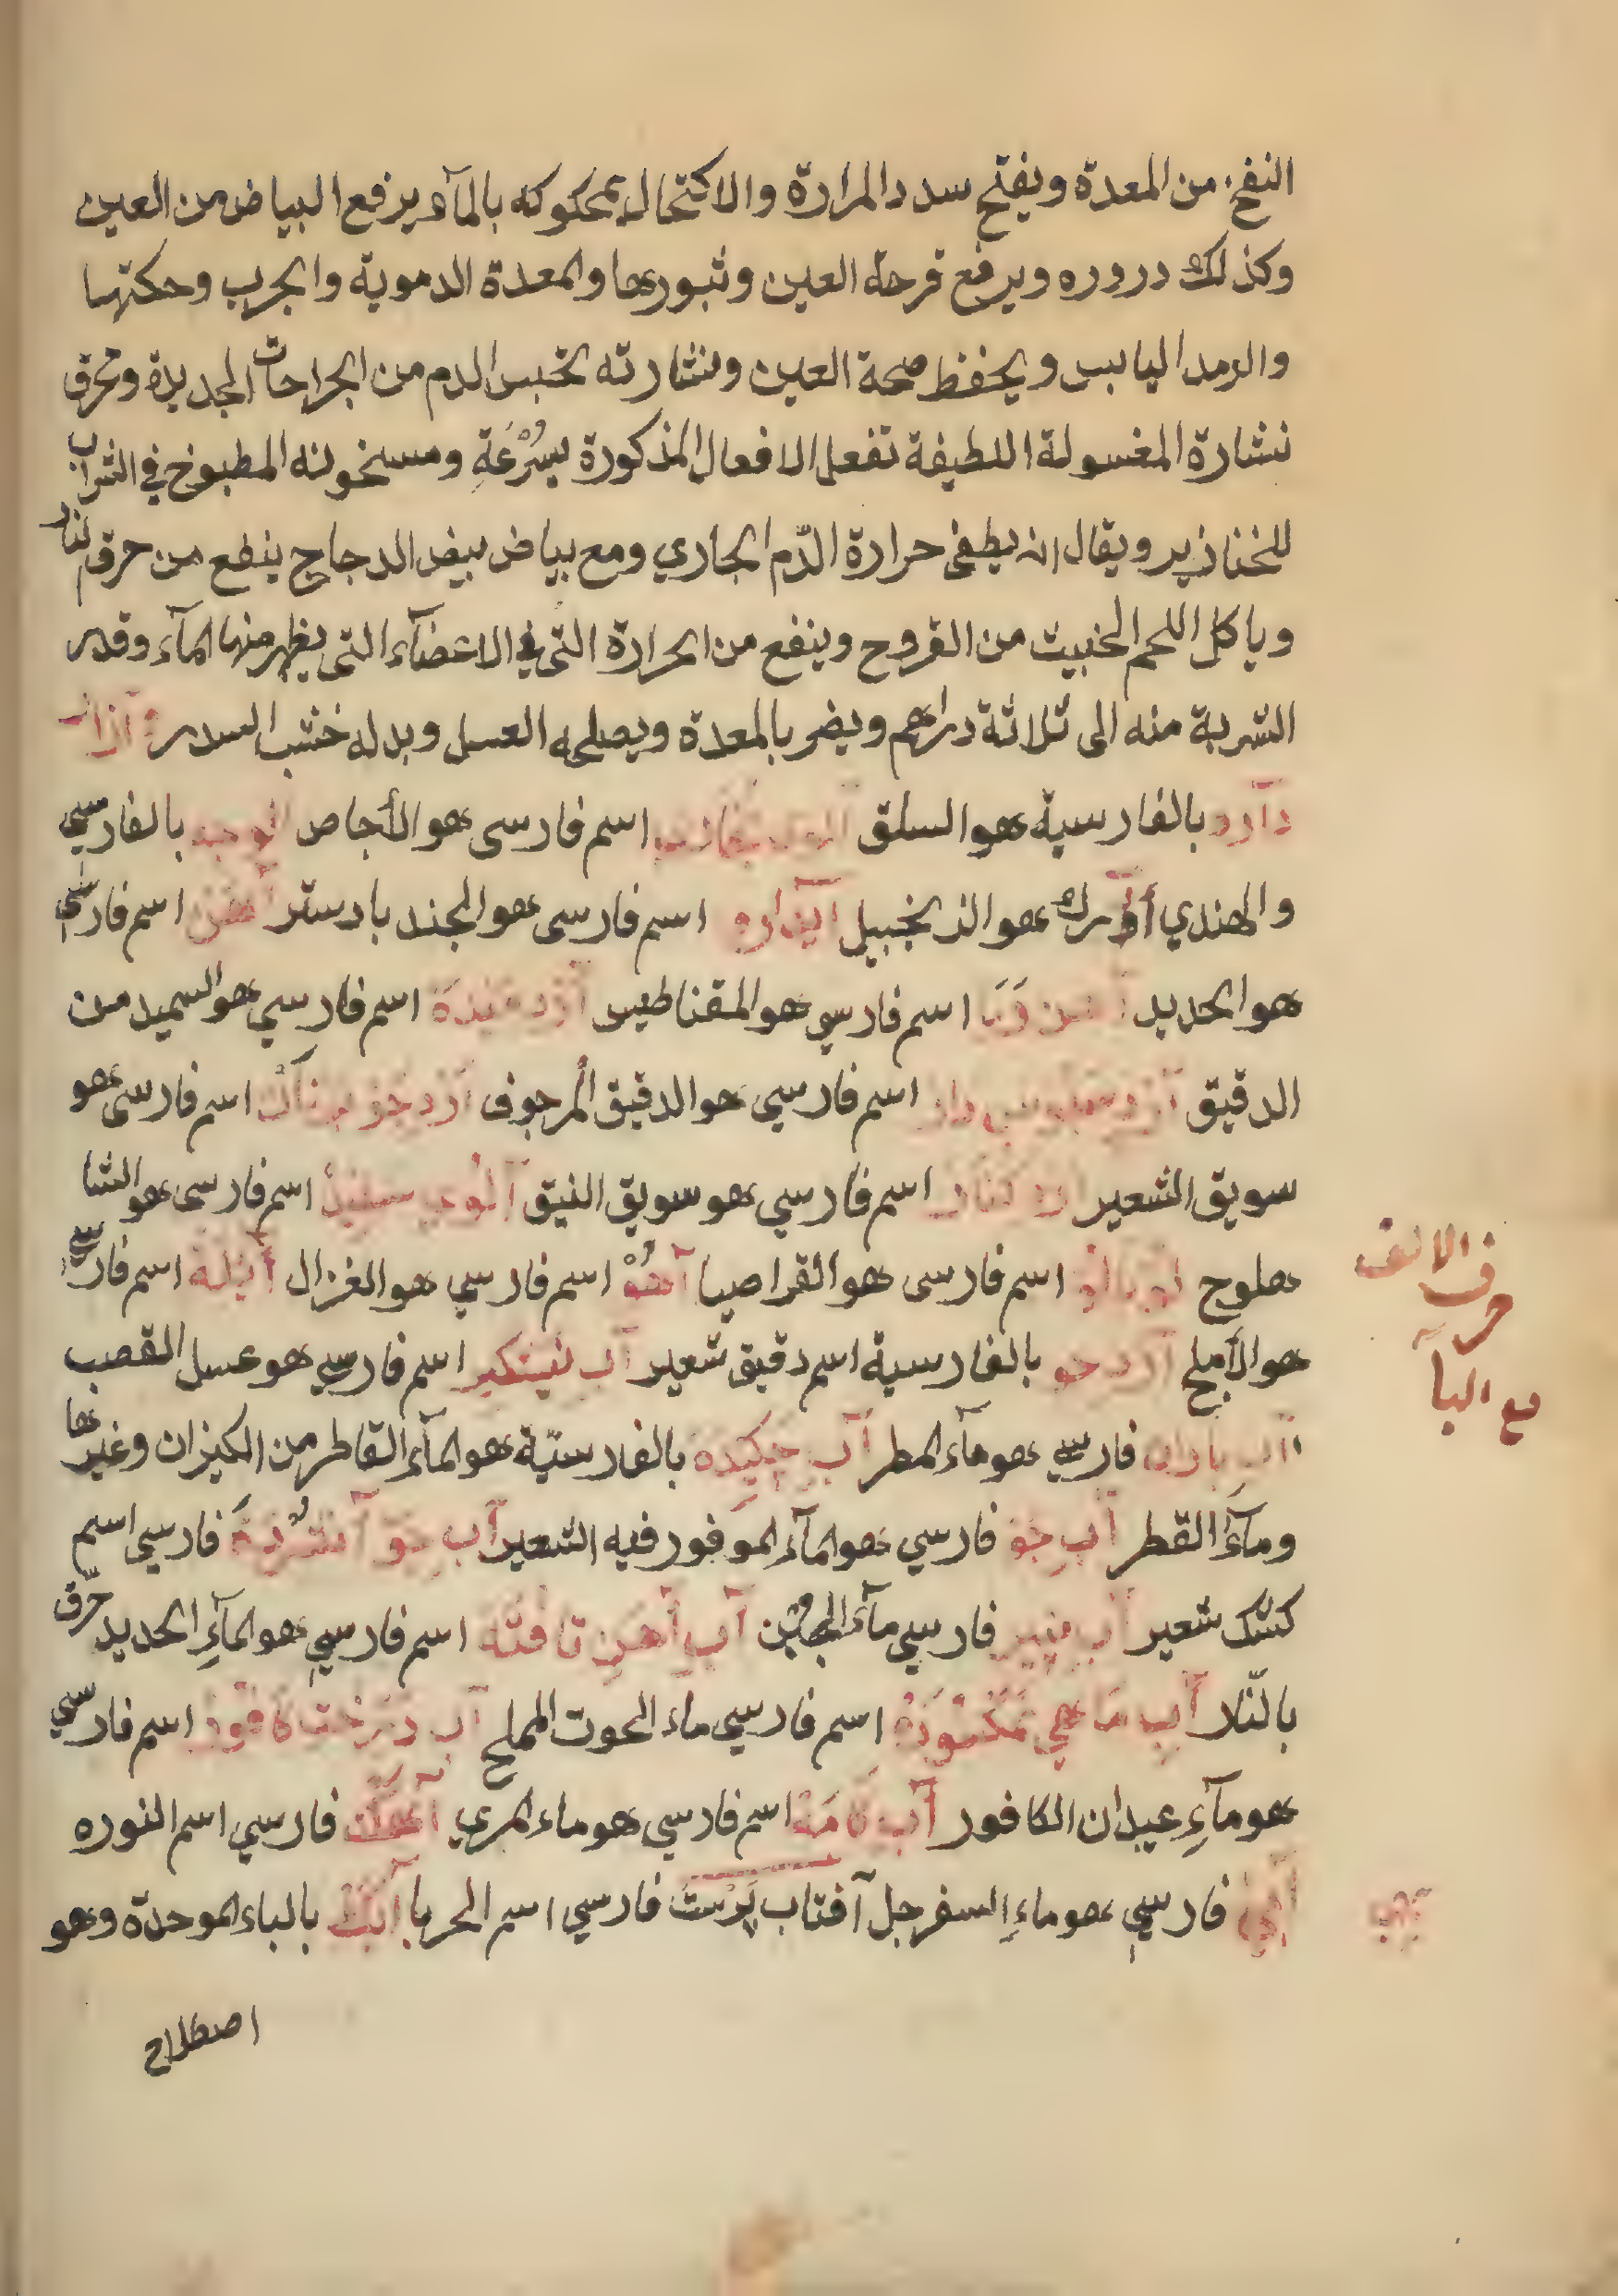 النفخ من المعدة ويفتح سدد المرارة والاكتحال بمحكوكه بالمآء يرفع البياض من العين
وكذلك دروره ويرفع قرحة العين وثبورها والمعدة الدموية والجرب وحكتها
والرمد اليابس ويحفظ صحة العين ونشارته تحبس الدم من الجراحات الجديدة وتحرق
نشارة المغسولة اللطيفة تفعل الافعال المذكورة بسُرْعَةٍ ومسخونه المطبوخ في الشراب
للخنازير ويقال انه يطفى حرارة الدّم الجاري ومع بياض بيض الدجاج ينفع من حرق النار
وياكل اللحم الخبيث من القروح وينفع من الحرارة التى في الاعضآء التى يظهر منها المآء وقدر
الشربة منه الى ثلاثة دراهم ويضر بالمعدة ويصلحه العسل وبدله خشب السدر آزاد
دآرو بالفارسية هو السلق اسم فارسى هو الأجاص بالفارسي
والهندي أَدْرك هو الزنجبيل اسم فارسى هو الجندبادستر آهن اسم فارسي
هو الحديد اسم فارسي هو المقناطيس اسم فارسي هو السميد من
الدقيق اسم فارسي هو الدقيق المرجوف اسم فارسى هو
سويق الشعير اسم فارسي هو سويق النبق اسم فارسى هو الشا
هلوج اسم فارسى هو القراصيا آهُوْ اسم فارسي هو الغزال أَمْلَه اسم فارسي
هو الأملج آرد جو بالفارسية اسم دقيق شعير آب نيشكير اسم فارسي هو عسل القصب
آب باران فارسي هو مآء المطر آب چكيده بالفارسيّة هو المآء القاطر من الكيزان وغيرها
ومآءُ القطر آب جَوْ فارسي هو المآء الموفور فيه الشعير آب جَوْ فارسي اسم
كشك شعير آب پنير فارسي مآء الجبن آبِ آهَنِ تافته اسم فارسي هو المآءِ الحديد حرّق
بالنّار آبِ مَاهي نمكسُودَه اسم فارسي ماء الحوت المملح آب درخت كافور اسم فارسي
هو مآءِ عيدان الكافور آب كَامَهْ اسم فارسي هو ماء المري آهَك فارسي اسم النوره
آبى فارسي هو ماءِ السفرجل آفتاب پَرَسْت فارسي اسم الحربا آبَك بالباء الموحدة وهو
اصطلاح
حرف الالف
مع البآ